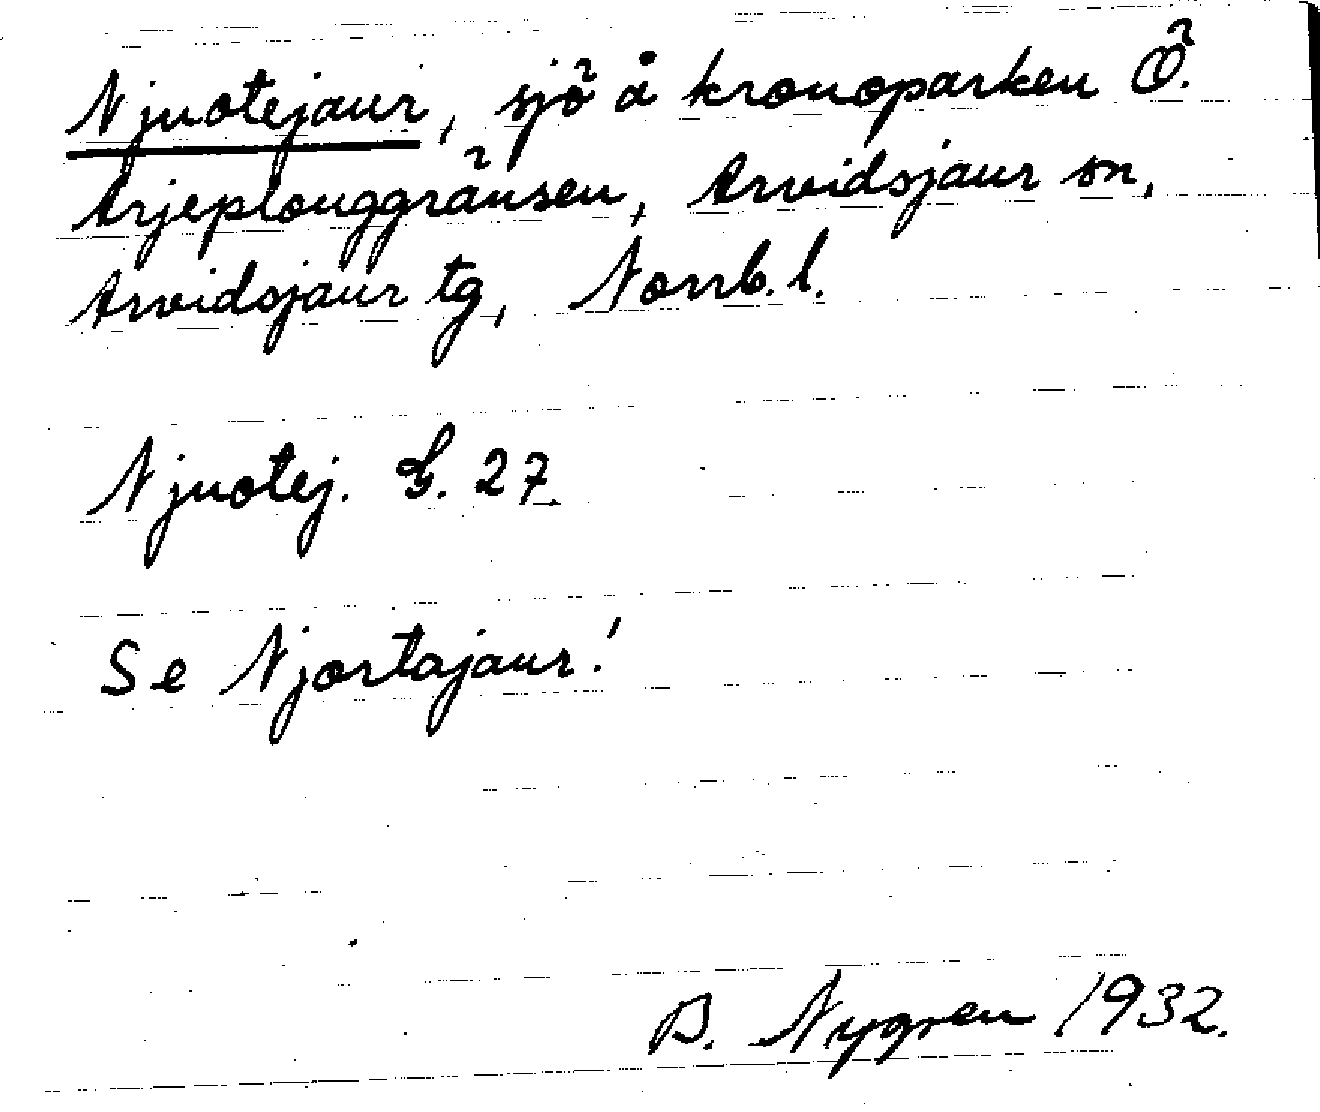 Njuotejaur, sjö å kronoparken Ö.
Arjeplouggränsen, Arvidsjaur sn,
Arvidsjaur tg, Norrb. l.
Njuotej. G. 27.
Se Njortajaur!
B. Nygren 1932.